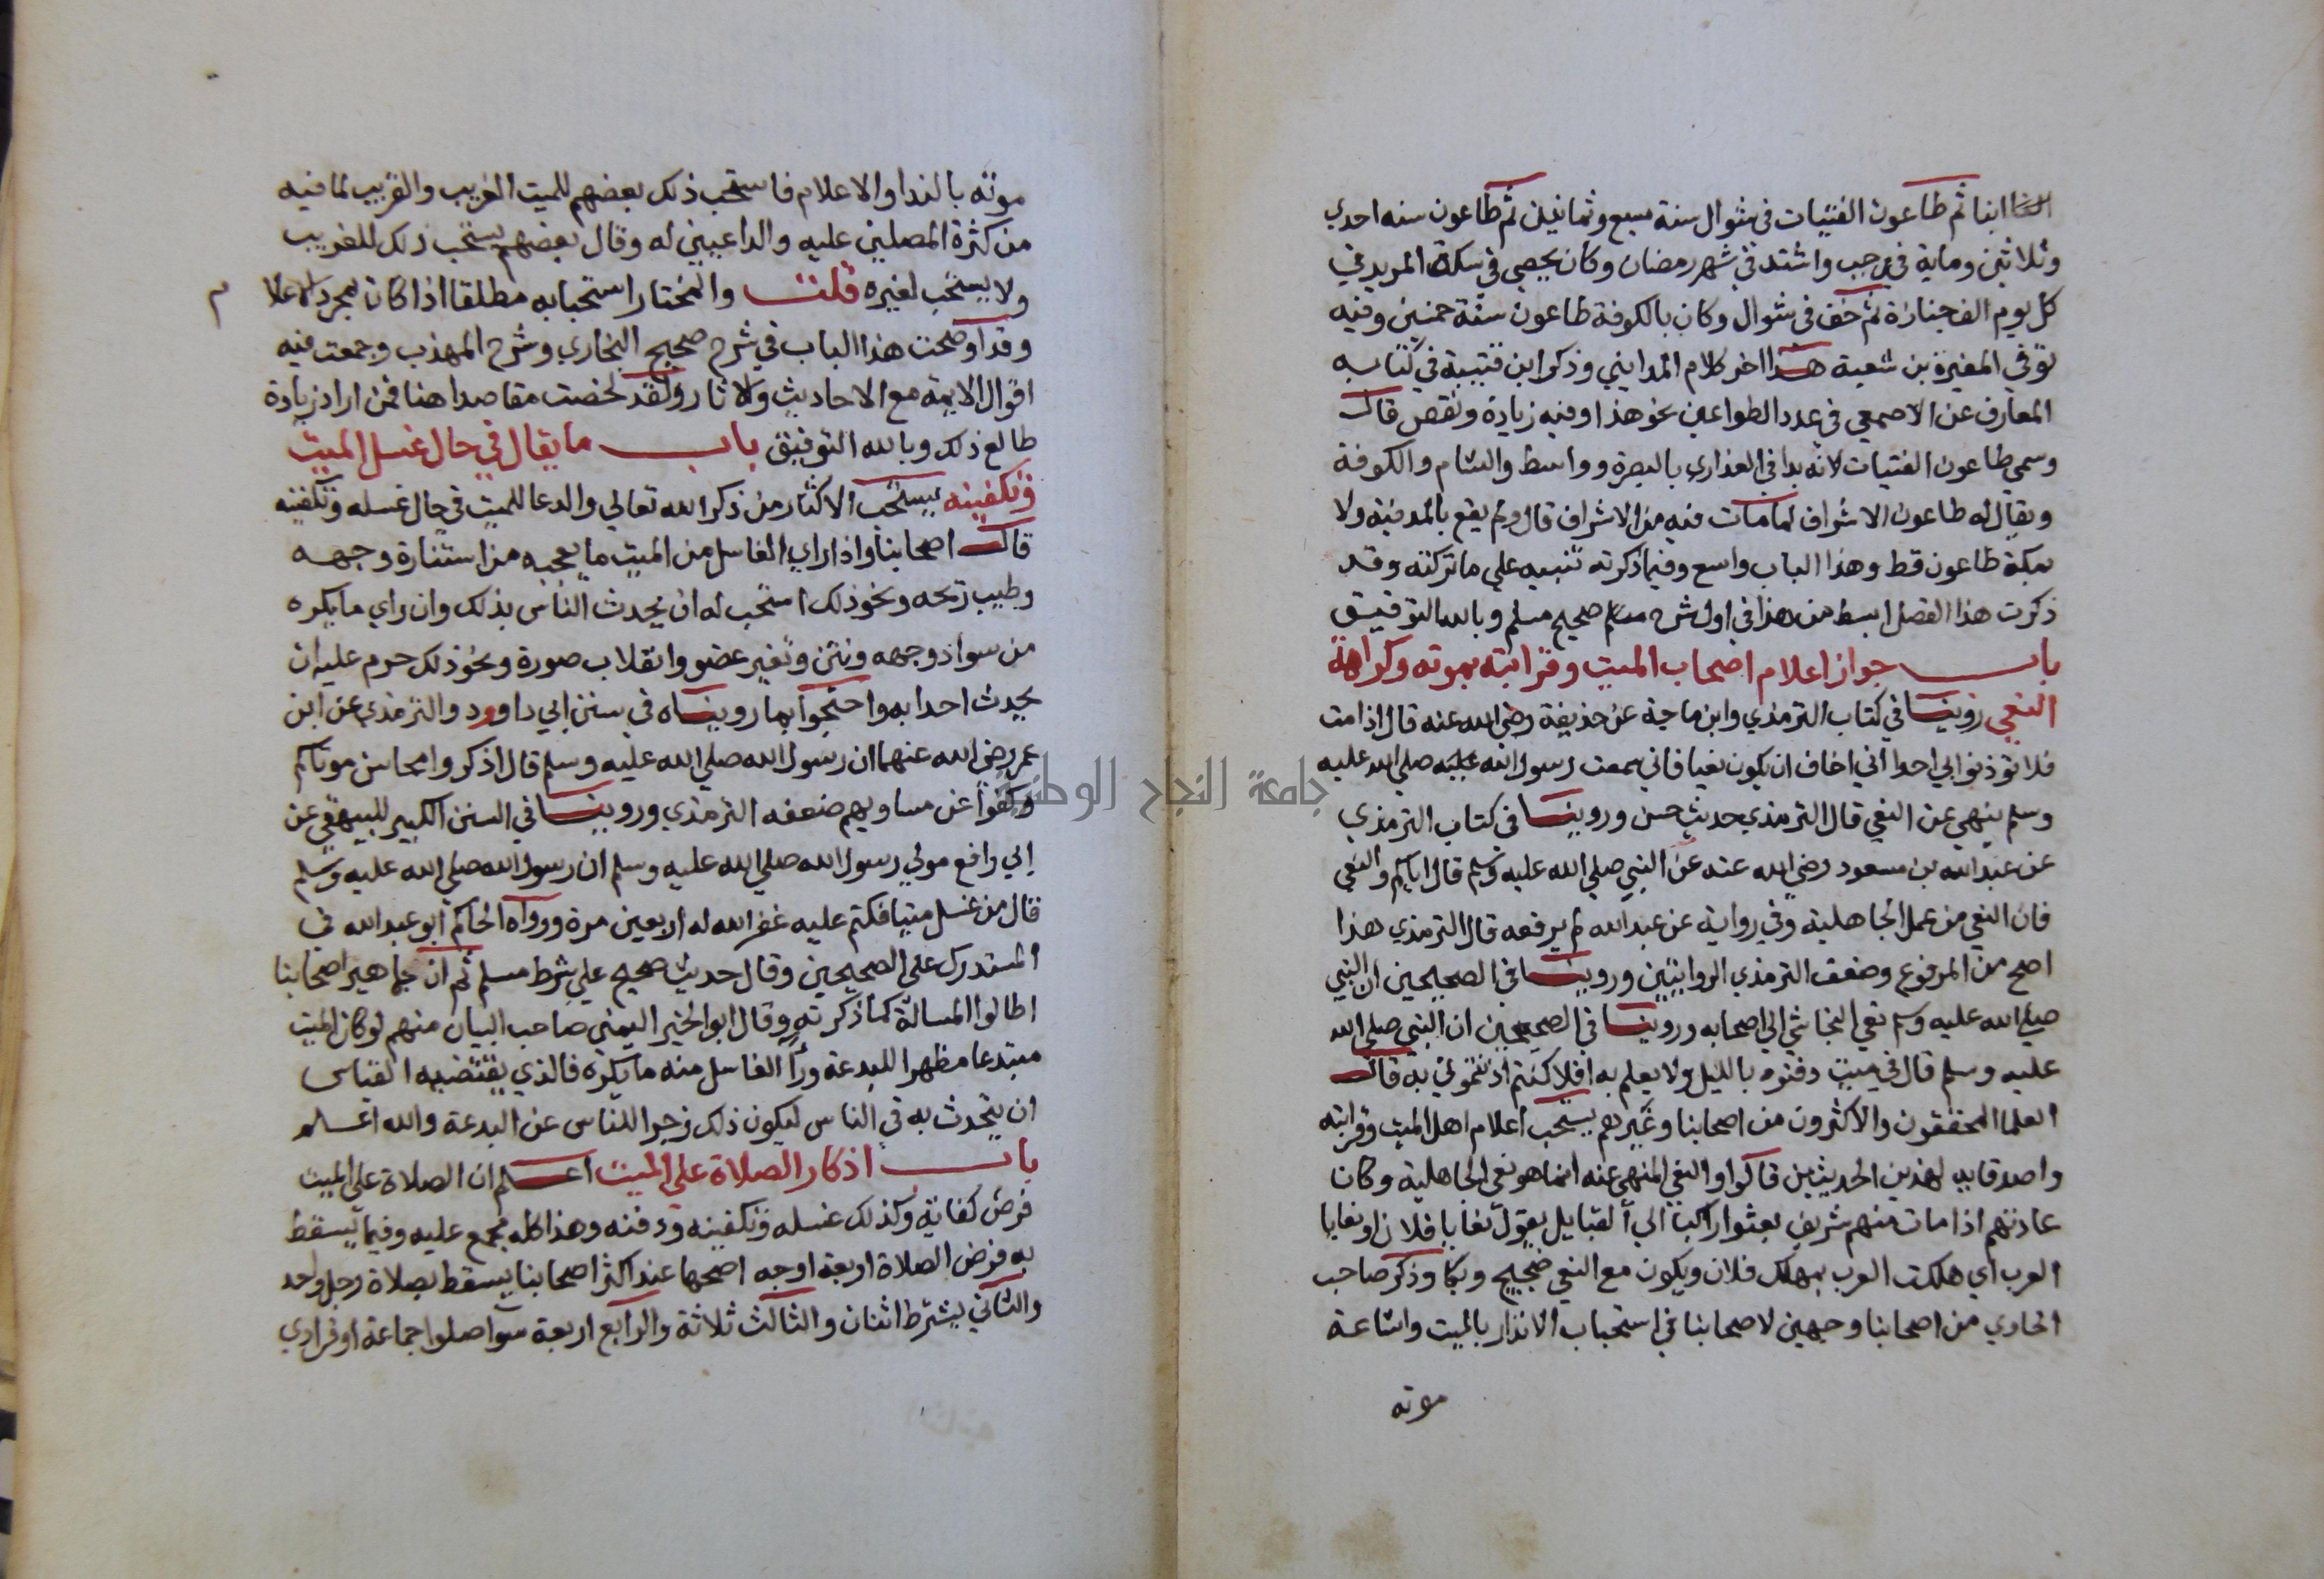 ابنا ثم طاعون الفتيات في شوال سنة سبع وثمانين ثم طاعون سنه احدي
وثلاثين وماية في رجب واشتد في شهر رمضان وكان يحصي في سكة المربد في
كل يوم الف جنازة ثم خف في شوال وكان بالكوفة طاعون سنة خمسين وفيه
توفي المغيرة بن شعبة هذا اخر كلام المدايني وذكر ابن قتيبة في كتابه
المعارف عن الاصمعي في عدد الطواعين نحو هذا وفيه زيادة ونقص قال
وسمي طاعون الفتيات لانه بدا في العذاري بالبصرة وواسط والشام والكوفة
ويقال له طاعون الاشراف لما مات فيه من الاشراف قال ولم يقع بالمدينة ولا
بمكة طاعون قط وهذا الباب واسع وفيما ذكرته تنبيه علي ما تركته وقد
ذكرت هذا الفصل ابسط من هذا في اول شرح صحيح مسلم وبالله التوفيق
باب جواز اعلام اصحاب الميت وقرابته بموته وكراهة
النعي روينا في كتاب الترمذي وابن ماجة عن حذيفة رضي الله عنه قال اذا مت
فلا توذنوا بي احدا اني اخاف ان يكون نعيا فاني سمعت رسول الله صلي الله عليه
وسلم ينهي عن النعي قال الترمذي حديث حسن وروينا في كتاب الترمذي
عن عبد الله بن مسعود رضي الله عنه عن النبي صلي الله عليه وسلم قال اياكم والنعي
فان النعي من عمل الجاهلية وفي رواية عن عبد الله لم يرفعه قال الترمذي هذا
اصح من المرفوع وضعف الترمذي الروايتين وروينا في الصحيحين ان النبي
صلي الله عليه وسلم نعي النجاشي الي اصحابه وروينا في الصحيحين ان النبي صلي الله
عليه وسلم قال في ميت دفنوه بالليل ولا يعلم به افلا كنتم اذنتموني به قال
العلما المحققون والاكثرون من اصحابنا وغيرهم يستحب اعلام اهل الميت وقرابته
واصدقايه لهذين الحديثين قالوا والنعي المنهي عنه انما هو نعي الجاهلية وكان
عادتهم اذا مات منهم شريف بعثوا راكبا الي القبايل يقول نعايا فلان او نعايا
العرب اي هلكت العرب بمهلك فلان ويكون مع النعي ضجيج وبكا وذكر صاحب
الحاوي من اصحابنا وجهين لاصحابنا في استحباب الانذار بالميت واشاعة
موته
موته بالندا والاعلام فاستحب ذلك بعضهم للميت الغريب والقريب لما فيه
من كثرة المصلين عليه والداعيين له وقال بعضهم يستحب ذلك للغريب
ولا يستحب لغيره قلت والمختار استحبابه مطلقا اذا كان بمجرد الاعلا م
وقد اوضحت هذا الباب في شرح صحيح البخاري وشرح المهذب وجمعت فيه
اقوال الايمة مع الاحاديث والاثار ولقد لخصت مقاصدا هنا فمن اراد زيادة
طالع ذلك وبالله التوفيق باب ما يقال في حال غسل الميت
وتكفينه يستحب الاكثار من ذكر الله تعالي والدعا للميت في حال غسله وتكفينه
قال اصحابنا واذا راي الغاسل من الميت ما يعجبه من استنارة وجهه
وطيب ريحه ونحو ذلك استحب له ان يحدث الناس بذلك وان راي ما يكره
من سواد وجهه ونتن وتغير عضو وانقلاب صورة ونحو ذلك حرم عليه ان
يحدث احدا به واحتجوا بما رويناه في سنن ابي داوود والترمذي عن ابن
عمر رضي الله عنهما ان رسول الله صلي الله عليه وسلم قال اذكروا محاسن موتاكم
وكفوا عن مساويهم ضعفه الترمذي وروينا في السنن الكبير للبيهقي عن
ابي رافع مولي رسول الله صلي الله عليه وسلم ان رسول الله صلي الله عليه وسلم
قال من غسل ميتا فكتم عليه غفر الله له اربعين مرة ورواه الحاكم ابو عبد الله في
المستدرك علي الصحيحين وقال حديث صحيح علي شرط مسلم ثم ان جماهير اصحابنا
اطالوا المسالة كما ذكرته وقال ابو الخير اليمني صاحب البيان منهم لو كان الميت
مبتدعا مظهرا للبدعة ورأ الغاسل منه ما يكره فالذي يقتضيه القياس
ان يتحدث به في الناس ليكون ذلك زجرا للناس عن البدعة والله اعلم
باب اذكار الصلاة علي الميت اعلم ان الصلاة علي الميت
فرض كفاية وكذلك غسله وتكفينه ودفنه وهذا كله مجمع عليه وفيما يسقط
به فرض الصلاة اربعة اوجه اصحها عند اكثر اصحابنا يسقط بصلاة رجل واحد
والثاني يشترط اثنان والثالث ثلاثة والرابع اربعة سوا صلوا جماعة او فرادي
جامعة النجاح الوطنية